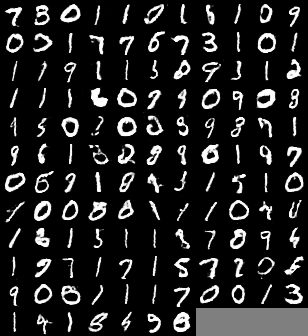 7 3 0 1 1 0 1 6 1 0 9
0 0 1 7 7 6 7 3 1 0 1
1 7 9 1 1 3 8 9 3 1 2
1 1 1 6 0 7 9 0 9 0 8
9 5 0 0 3 9 8 7 1
9 6 1 2 8 9 6 1 9 7
0 6 9 1 8 4 3 1 5 1 0
1 0 0 8 8 1 1 1 0 4
1 8 1 5 1 1 8 7 8 9 6
1 9 7 1 7 1 5 7 2 0 5
9 0 8 1 1 1 7 0 0 1 3
1 4 1 6 4 9 8